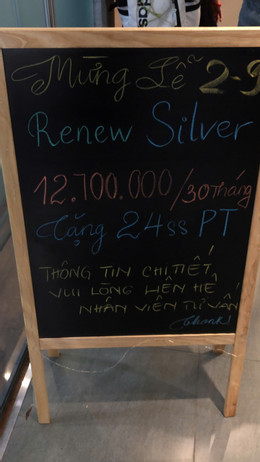 Mừng Lễ 2-9
Renew Silver
12.700.000/30 Tháng
Tặng 24ss PT
THÔNG TIN CHI TIẾT
VUI LÒNG LIÊN HỆ
NHÂN VIÊN TƯ VẤN
Thank!